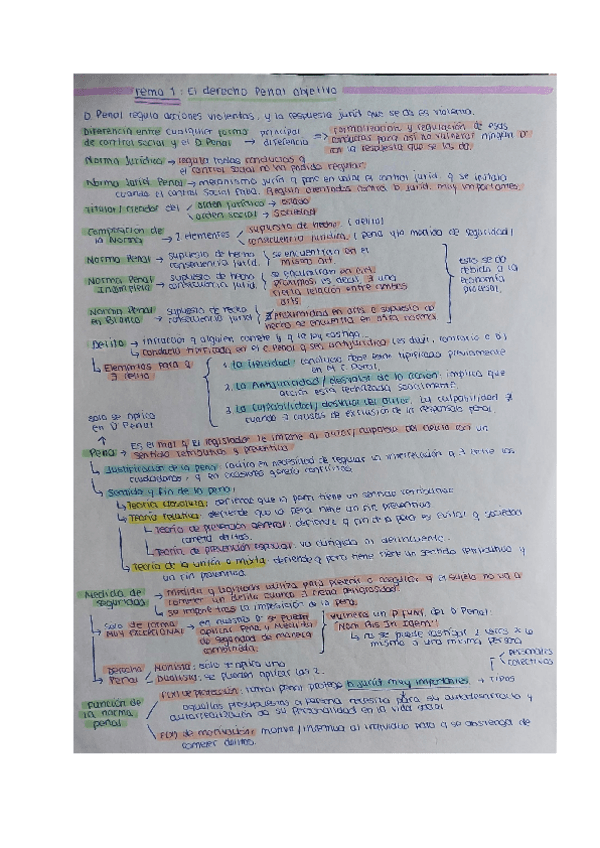 Tema 1: El derecho Penal objetivo
D Penal regula acciones violentas, y la respuesta juríd que se da es violenta.
Diferencia entre cualquier forma de control social y el D Penal → principal diferencia ⇒ formalización y regulación de esas conductas para así no vulnerar ningún D con la respuesta que se les da.
Norma Jurídica → regula todas conductas q el control social no ha podido regular.
Norma Juríd Penal → mecanismo juríd q pone en valor el control juríd. y se instaura
cuando el control social falla. Regulan atentados contra b. juríd. muy importantes.
Titular/creador del orden jurídico → estado
orden social → sociedad
Composición de la Norma → 2 elementos supuesto de hecho (delito)
consecuencia jurídica (pena y/o medida de seguridad)
Norma Penal → supuesto de hecho consecuencia juríd. se encuentran en el mismo art.
Norma Penal Incompleta → supuesto de hecho consecuencia juríd se encuentran en art. próximos, es decir, 
cierta relación entre ambos arts.
Norma Penal en Blanco → supuesto de hecho consecuencia juríd en arts. o supuesto de
hecho se encuentra en otra norma
esto se da debido a la economía procesal.
Delito → infracción q alguien comete y q la ley castiga.
conducta tipificada en el C. Penal y ser antijurídica (es decir, contraria a D)
Elementos para q delito
1. La Tipicidad: conductas deben estar tipificada previamente
en el C. Penal.
2. La Antijuricidad/desvalor de la acción: implica que
acción está rechazada socialmente.
3. La Culpabilidad/desvalor del autor. La culpabilidad
cuando causas de exclusión de la responsab. penal.
solo se aplica en D Penal
Pena → Es el mal q el legislador le impone al autor/culpable del delito con un
sentido retributivo y preventivo.
Justificación de la pena: radica en necesidad de regular la interrelación q entre los
ciudadanos, y en ocasiones genera conflictos.
Sentido y fin de la pena:
Teoría absoluta: defiende que la pena tiene un sentido retributivo.
Teoría relativa: defiende que la pena tiene un fin preventivo
Teoría de prevención general: defiende q fin de la pena es evitar q sociedad
cometa delitos.
Teoría de prevención especial: va dirigida al delincuente.
Teoría de la unión o mixta: defiende q pena tiene tanto un sentido retributivo y
un fin preventivo.
Medida de seguridad → medida q legislador utiliza para prevenir o asegurar q el sujeto no va a
cometer un delito cuando peligrosidad.
su impone tras la imposición de la pena.
Solo de forma MUY EXCEPCIONAL → en nuestro D se pueden aplicar Pena y Medidas de seguridad de manera combinada.
vulnera un P. Fund. del D Penal:
"Non Bis In Idem"
no se puede castigar 2 veces x lo
mismo a una misma persona
Derecho Penal Monista: solo se aplica uno
Dualista: se pueden aplicar las 2.
Función de la norma penal
F(X) DE PROTECCIÓN: norma penal protege b. juríd muy importantes → TIPOS personales colectivos
aquellos presupuestos q persona necesita para su autodesarrollo y
autorrealización de su personalidad en la vida social
F(X) de motivación: motiva/incentiva al individuo para q se abstenga de
cometer delitos.